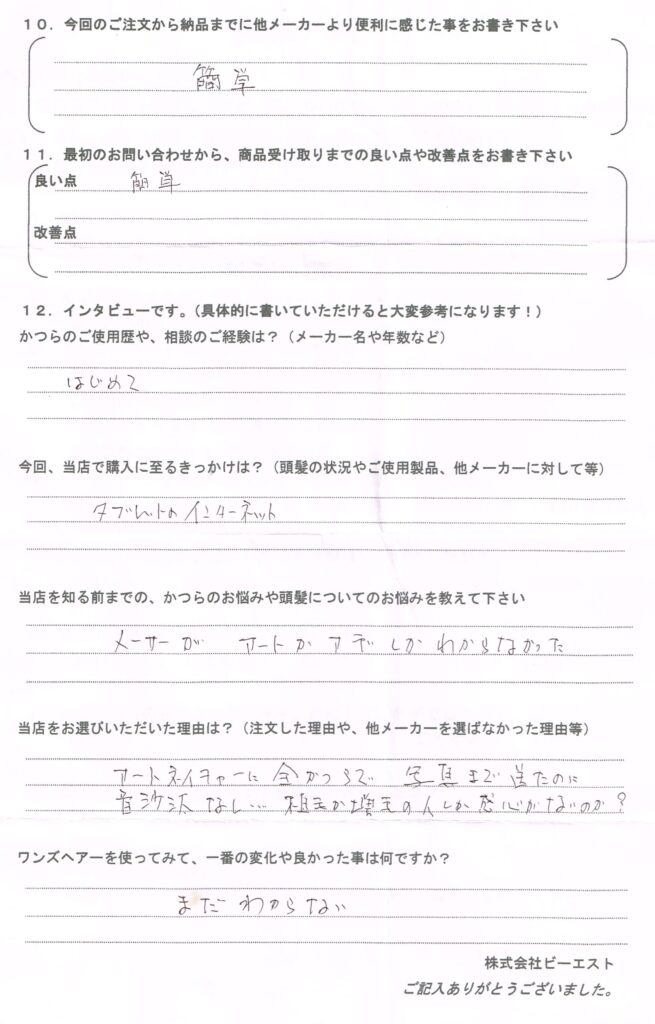 １０．今回のご注文から納品までに他メーカーより便利に感じた事をお書き下さい
簡単
１１．最初のお問い合わせから、商品受け取りまでの良い点や改善点をお書き下さい
良い点 簡単
改善点
１２．インタビューです。（具体的に書いていただけると大変参考になります！）
かつらのご使用歴や、相談のご経験は？（メーカー名や年数など）
はじめて
今回、当店で購入に至るきっかけは？（頭髪の状況やご使用製品、他メーカーに対して等）
タブレットのインターネット
当店を知る前までの、かつらのお悩みや頭髪についてのお悩みを教えて下さい
メーカーが アートか アデ しか わからなかった
当店をお選びいただいた理由は？（注文した理由や、他メーカーを選ばなかった理由等）
アートネイチャーに 全かつらで 写真まで送たのに
音沙汰なし… 増毛の人しか 心がないのか？
ワンズヘアーを使ってみて、一番の変化や良かった事は何ですか？
まだ わからない
株式会社ビーエスト
ご記入ありがとうございました。